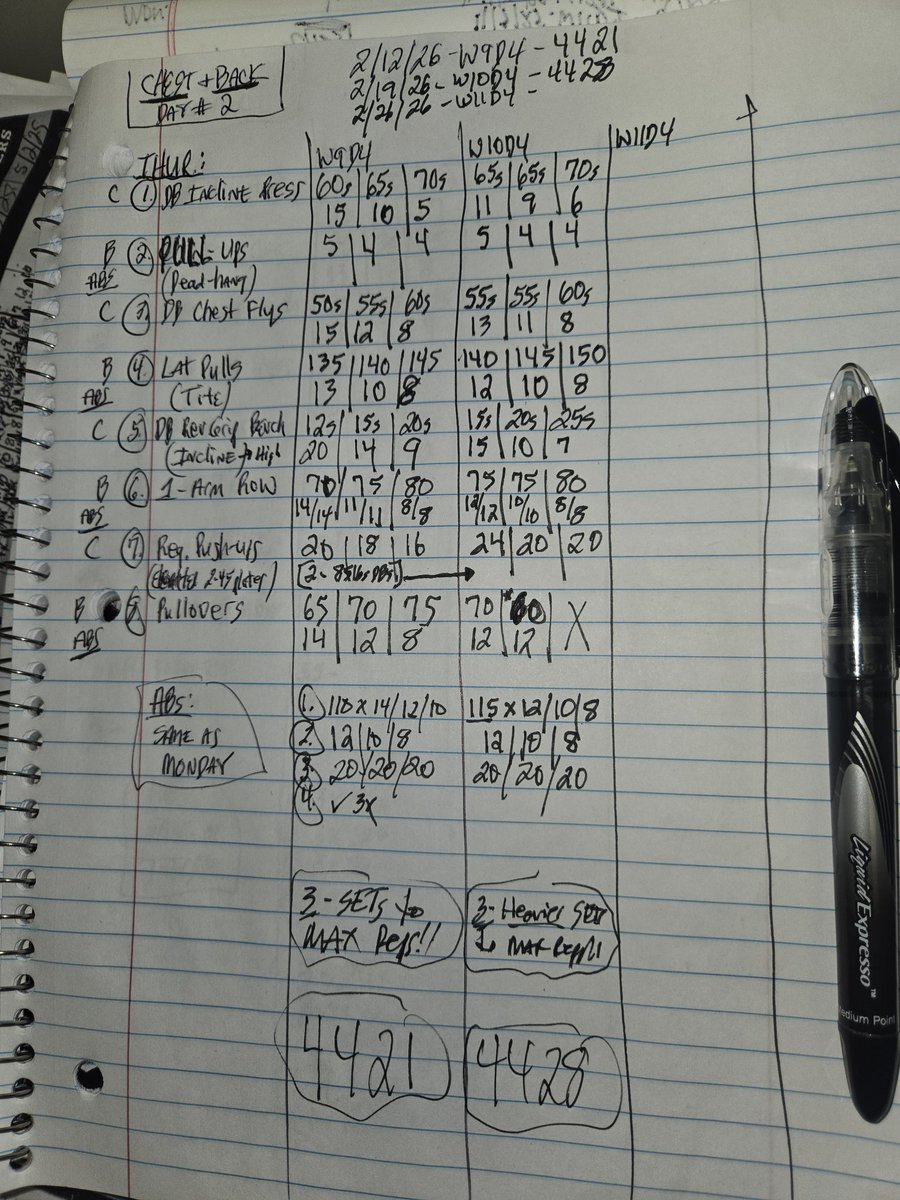 CHEST + BACK
DAY # 2
2/12/26 - W9D4 - 4421
2/19/26 - W10D4 - 4428
2/26/26 - W11D4
THUR: W9D4 W10D4 W11D4
C 1. DB Incline Press 60s 65s 70s 65s 65s 70s
15 10 5 11 9 6
B 2. PULL-Ups 5 4 4 5 4 4
ABS (Dead-hang)
C 3. DB Chest Flys 50s 55s 60s 55s 55s 60s
15 12 8 13 11 8
B 4. Lat Pulls 135 140 145 140 145 150
ABS (Tite) 13 10 8 12 10 8
C 5. DB Rev Grip Bench 12s 15s 20s 15s 20s 25s
(Incline to High 20 14 9 15 10 7
B 6. 1-Arm Row 70 75 80 75 75 80
ABS 14/14 11/11 8/8 12/12 10/10 8/8
C 7. Reg. Push-ups 20 18 16 24 20 20
2-45 plates) [2-85lbs DBs]
B 8. Pullovers 65 70 75 70 *60 X
ABS 14 12 8 12 12
ABS:
SAME AS
MONDAY
1. 110 x 14/12/10 115 x 12/10/8
2. 12/10/8 12/10/8
3. 20/20/20 20/20/20
4. ✓ 3x
3-SETS to
MAX Reps!!
3-Heavier Sets
to MAX Reps!!
4421 4428
Liquid Expresso™
Medium Point